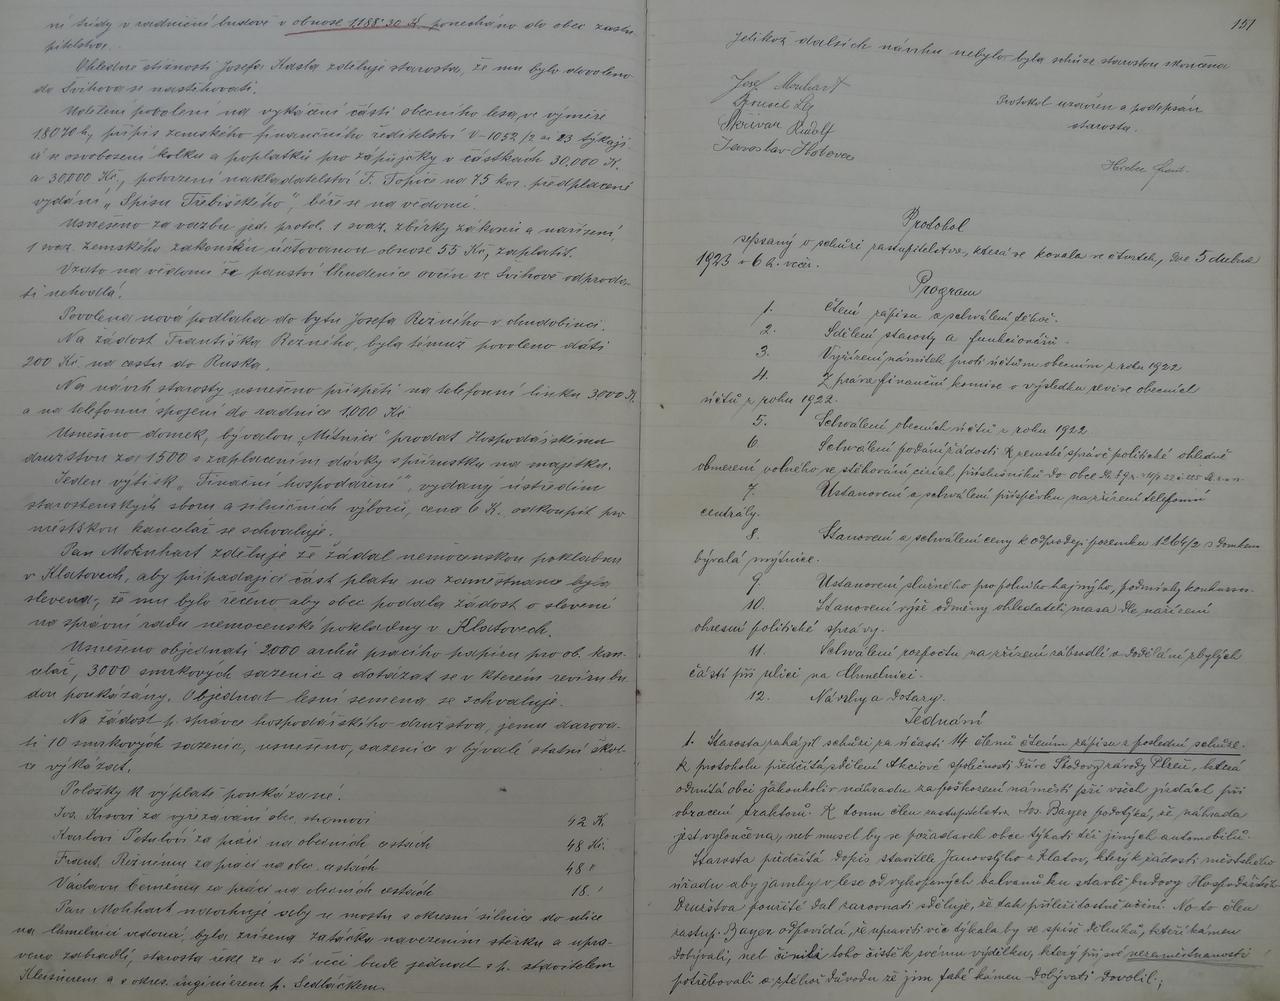 ní třídy v radniční budově v obnose 1188·30 K ponecháno do obec zastu
pitelstva.
Ohledně stížnosti Josefa Kasla zděluje starosta, že mu bylo dovoleno
do Švihova se nastěhovati.
Udělení povolení na vykácení části obecního lesa ve výměře
přípis zemského finančního ředitelství V-1052/2 ai 23 týkají-
cí se osvobození kolku a poplatků pro zápůjčky v částkách 30.000 K.
a 30.000 Kč, potvrzení nakladatelství F. Topiče na 75 kor. předplacené
vydání „Spisů Třebízského", béře se na vědomí.
Usnešeno za vazbu jed. protol. 1 svaz. zbírky zákonů a nařízení,
1 svaz. zemského zákoníku účtovanou obnose 55 Kč, zaplatit.
Vzato na vědomí že panství Chudenice ovčín ve Švihově odproda-
ti nehodlá.
Povolena nová podlaha do bytu Josefa Režného v chudobinci.
Na žádost Františka Režného, byla témuž povoleno dáti
200 Kč na cestu do Ruska.
Na návrh starosty usnešeno přispěti na telefonní linku 3000 K.
a na telefonní spojení do radnice 1000 Kč
Usnešno domek, bývalou „Mítnici" prodat Hospodářskému
družstvu za 1500 s zaplacením dávky s přírostku na majetku.
Jeden výtisk „Finační hospodaření", vydaný ústředím
starostenských sborů a silničních výborů, cena 6 K. odkoupit pro
městskou kancelář se schvaluje.
Pan Mohnhart zděluje že žádal nemocenskou pokladnu
v Klatovech, aby připadající část platu na zaměstnance byla
slevena, že mu bylo řečeno aby obec podala žádost o slevení
na správní radu nemocenské pokladny v Klatovech.
Usnešeno objednati 2000 archů psacího papíru pro ob. kan-
celář, 3000 smrkových sazenic a dotázat se v kterém revíru bu
dou poukázány. Objednat lesní semena se schvaluje.
Na žádost p. správce hospodářského družstva, jemu darova-
ti 10 smrkových sazenic, usnešeno, sazenice v bývalé statní škol-
ce vykázat.
Položky k výplatě poukázané.
Jos. Krsovi za vyřezávání obc. stromoví 42 K.
Karlovi Potužovi za práci na obecních cestách 48 Kč.
Frant. Režnému za práci na obc. cestách 48 "
Václavu Černému za práci na obecních cestách 18 "
Pan Mohhart navrhuje aby u mostu s okresní silnice do ulice
na Chmelnici vedoucí, byla zřízena zatáčka navezením štěrku a upra-
veno zábradlí, starosta řekl že v té věci bude jednat s p. stavitelem
Kleisnerem a s okres. inginierem p. Sedláčkem.
151
Jelikož dalších návrhů nebylo byla schůze starostou skončena
Josef Monhart
Protokol uzavřen a podepsán
starosta.
Skřivan Rudolf
Jaroslav
Protokol
sepsaný o schůzi zastupitelstva, která se konala ve čtvrtek, dne 5 dubna
1923 v 6 h. večer.
Program
1. Čtení zápisu a schválení téhož.
2. Sdělení starosty a funkcionářů.
3. Vyřízení námitek proti účtům obecním z roku 1922
4. Zpráva finanční komise o výsledku revise obecních
účtů z roku 1922.
5. Schválení obecních účtů z roku 1922
6 Schválení podání žádosti k zemské správě politické ohledně
obmezení volného se stěhování cizích příslušníků do obce
7. Ustanovení a schválení příspěvku na zřízení telefonní
centrály.
8. Stanovení a schválení ceny k odprodeji pozemku 1266/2 s domkem
bývalá mýtnice.
9. Ustanovení služného pro polního hajného, podmínky konkursu.
10. Stanovení výše odměny ohledateli masa dle nařízení
okresní politické správy.
11. Schválení rozpočtu na zřízení zábradlí a dodělání zbylých
částí při ulici na Chmelnici.
12. Návrhy a dotazy.
Jednání
1. Starosta zahájil schůzi za účasti 14 členů čtením zápisu z poslední schůze.
K protokolu předčítá sdělení Akciové společnosti dříve Škodovy závody Plzeň, která
odmítá obci jakoukoliv náhradu za poškození náměstí při všech jízdách při
obracení traktorů. K tomu člen zastupitelstva Jos. Bayer podotýká, že náhrada
jest vyloučena, neb musel by se požadavek obce týkati též jiných automobilů.
Starosta předčítá dopis stavitele Janovského z Klatov, který k žádosti městského
úřadu aby jamky v lese od vykopaných balvanů ku stavbě budovy Hospodářského
Družstva použité dal zarovnati sděluje, že tak příležitostně učiní. Na to člen
zastup. Bayer odpovídá, že upraviti věc týkala by se spíše dělníků, kteří kámen
dobývali, neb činili toho čistě k svému výdělku, který při své nezaměstnanosti
potřebovali a z téhož důvodu že jim také kámen dobývati dovolil;